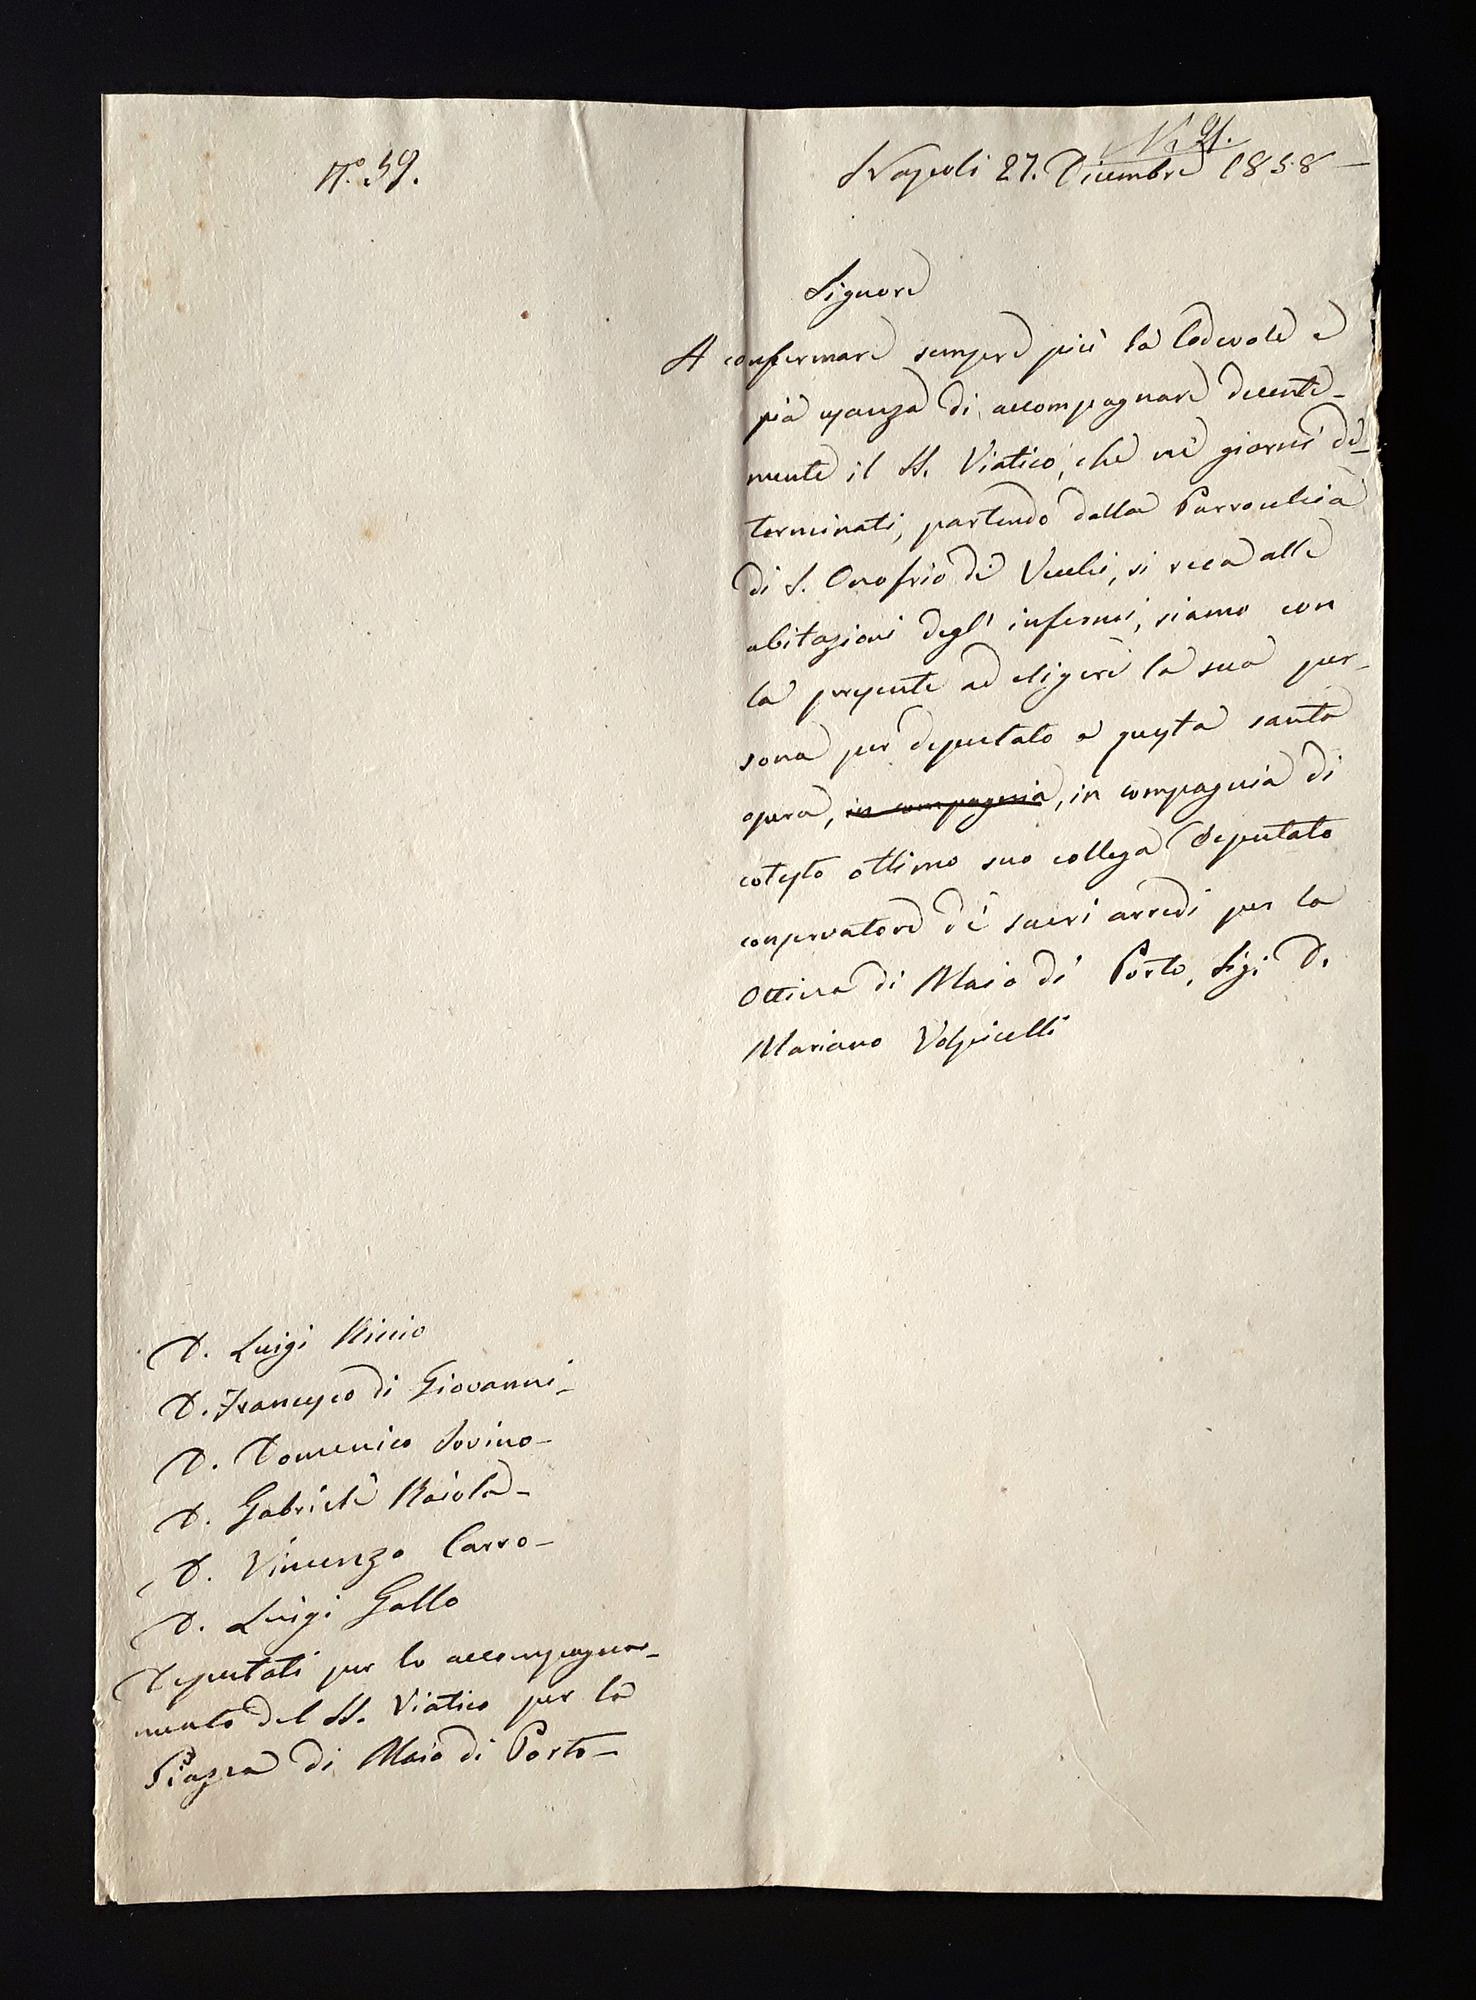 N.° 59.
Napoli 27. Dicembre 1858 –
Signore
A confermare sempre più la lodevole e
pia usanza di accompagnare decente-
mente il SS. Viatico, che ne' giorni de-
terminati, partendo dalla Parrocchia
di S. Onofrio de' Vecchi, si reca alle
abitazioni degl' infermi, siamo con
la presente ad eligere la sua per-
sona per deputato a questa santa
opera, in compagnia, in compagnia di
cotesto ottimo suo collega Deputato
conservatore de' sacri arredi per la
Ottina di Maio di Porto, Sig. D.
Mariano Volpicelli
D. Luigi Riccio
D. Francesco di Giovanni –
D. Domenico Iovino –
D. Gabriele Raiola –
D. Vincenzo Carro –
D. Luigi Gallo
Deputati per lo accompagna-
mento del SS. Viatico per la
Piazza di Maio di Porto –